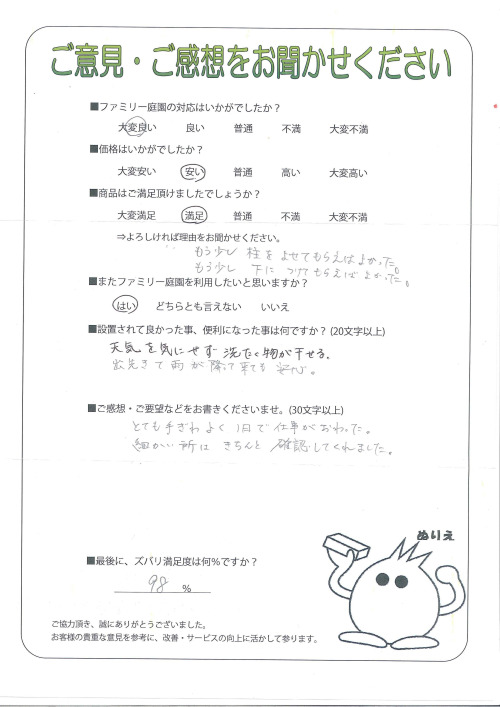 ご意見・ご感想をお聞かせください
■ファミリー庭園の対応はいかがでしたか？
大変良い 良い 普通 不満 大変不満
■価格はいかがでしたか？
大変安い 安い 普通 高い 大変高い
■商品はご満足頂けましたでしょうか？
大変満足 満足 普通 不満 大変不満
⇒よろしければ理由をお聞かせください。
もう少し 柱をよせてもらえばよかった。
もう少し 下に つけてもらえばよかった。
■またファミリー庭園を利用したいと思いますか？
はい どちらとも言えない いいえ
■設置されて良かった事、便利になった事は何ですか？(20文字以上)
天気を気にせず 洗たく物が干せる。
出先きで雨が降って来ても 安心。
■ご感想・ご要望などをお書きくださいませ。(30文字以上)
とても手ぎわよく 1日で仕事がおわった。
細かい所は きちんと 確認してくれました。
ぬりえ
■最後に、ズバリ満足度は何％ですか？
98 %
ご協力頂き、誠にありがとうございました。
お客様の貴重な意見を参考に、改善・サービスの向上に活かして参ります。